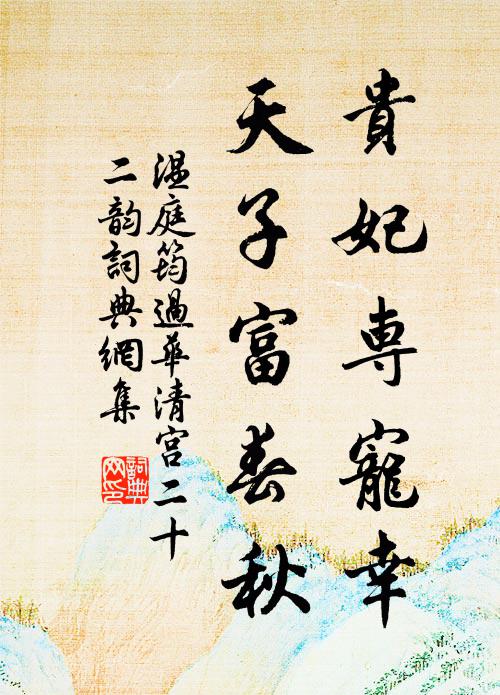 貴妃専寵幸
天子富春秋
温庭筠過華清宮二十
二韵詞典網集
詞典
网印